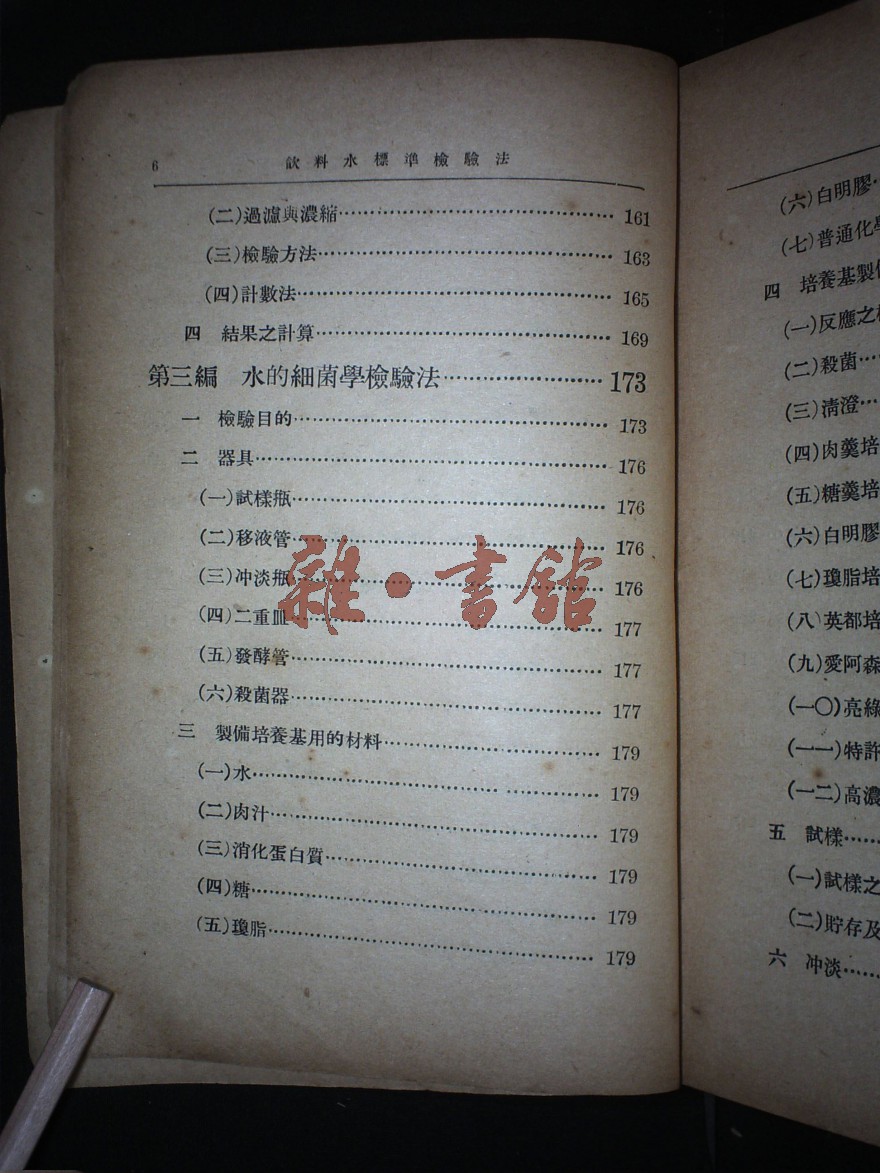 6 飲料水標準檢驗法
(二)過濾與濃縮……161
(三)檢驗方法……163
(四)計數法……165
四 結果之計算……169
第三編 水的細菌學檢驗法……173
一 檢驗目的……173
二 器具……176
(一)試樣瓶……176
(二)移液管……176
(三)冲淡瓶……176
(四)二重皿……177
(五)發酵管……177
(六)殺菌器……177
三 製備培養基用的材料……179
(一)水……179
(二)肉汁……179
(三)消化蛋白質……179
(四)糖……179
(五)瓊脂……179
雜·書館
(六)白明膠
(七)普通化學
四 培養基製備
(一)反應之
(二)殺菌……
(三)清澄……
(四)肉羹培
(五)糖羹培
(六)白明膠
(七)瓊脂培
(八)英都培
(九)愛阿森
(一〇)亮綠
(一一)特許
(一二)高濃
五 試樣……
(一)試樣之
(二)貯存及
六 冲淡……